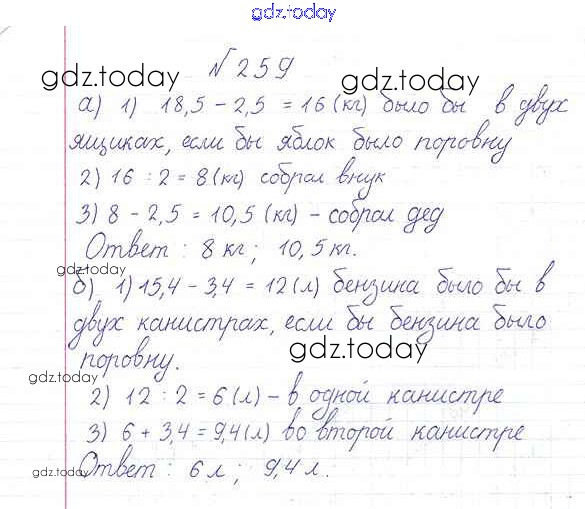 gdz.today
№259
gdz.today gdz.today
а) 1) 18,5 - 2,5 = 16 (кг) было бы в двух
ящиках, если бы яблок было поровну
2) 16 : 2 = 8 (кг) собрал внук
3) 8 - 2,5 = 10,5 (кг) - собрал дед
Ответ : 8 кг ; 10,5 кг.
gdz.today
б) 1) 15,4 - 3,4 = 12 (л) бензина было бы в
двух канистрах, если бы бензина было
поровну.
gdz.today
gdz.today
2) 12 : 2 = 6 (л) - в одной канистре
3) 6 + 3,4 = 9,4 (л) во второй канистре
Ответ : 6 л ; 9,4 л.
gdz.today